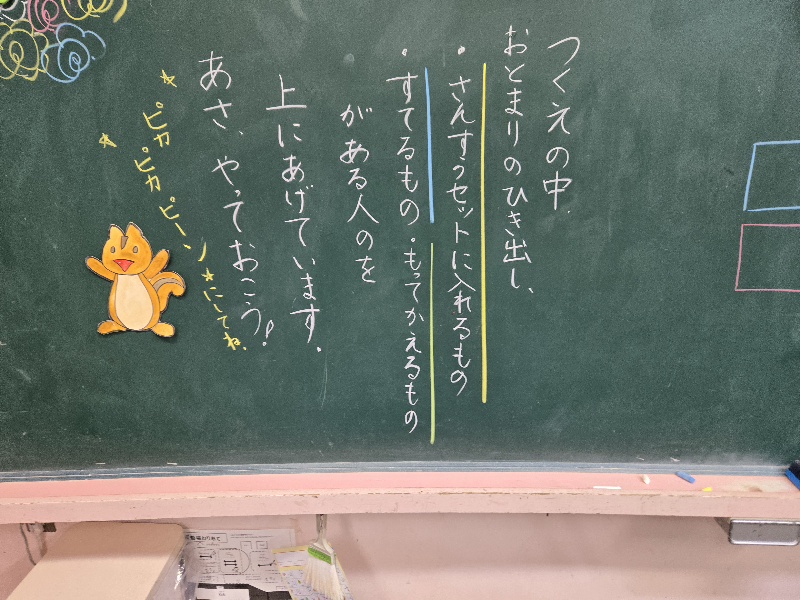 つくえの中、
おとまりのひき出し、
・さんすうセットに入れるもの
・すてるもの・もってかえるもの
がある人のを
上にあげています。
あさ、やっておこう!
☆ピカピカピーン☆にしてね。